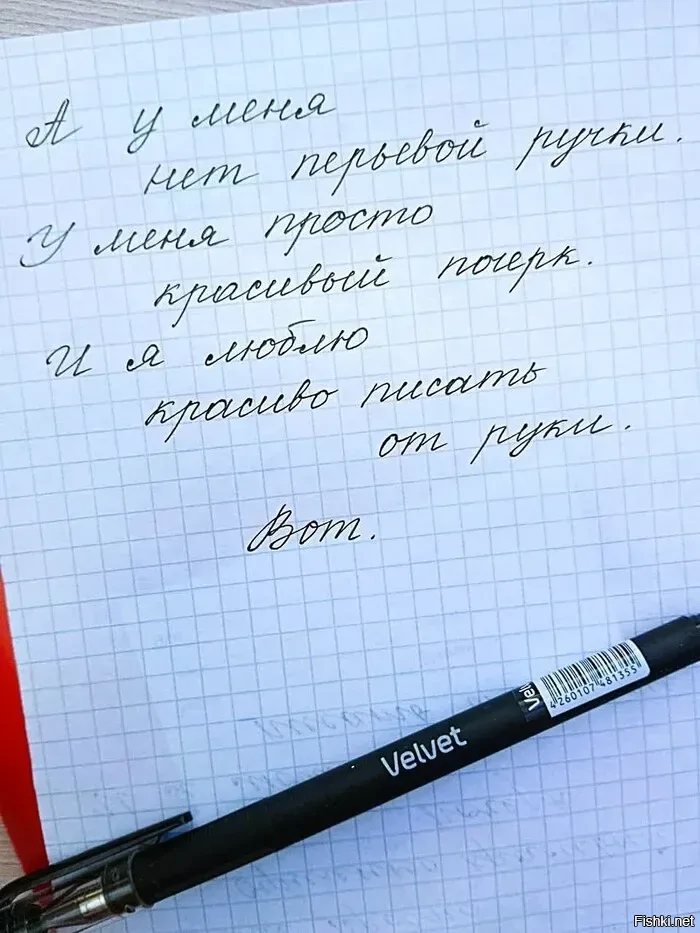 А у меня
нет перьевой ручки.
У меня просто
красивый почерк.
И я люблю
красиво писать
от руки.
Вот.
Velvet
4260107481355
Fishki.net